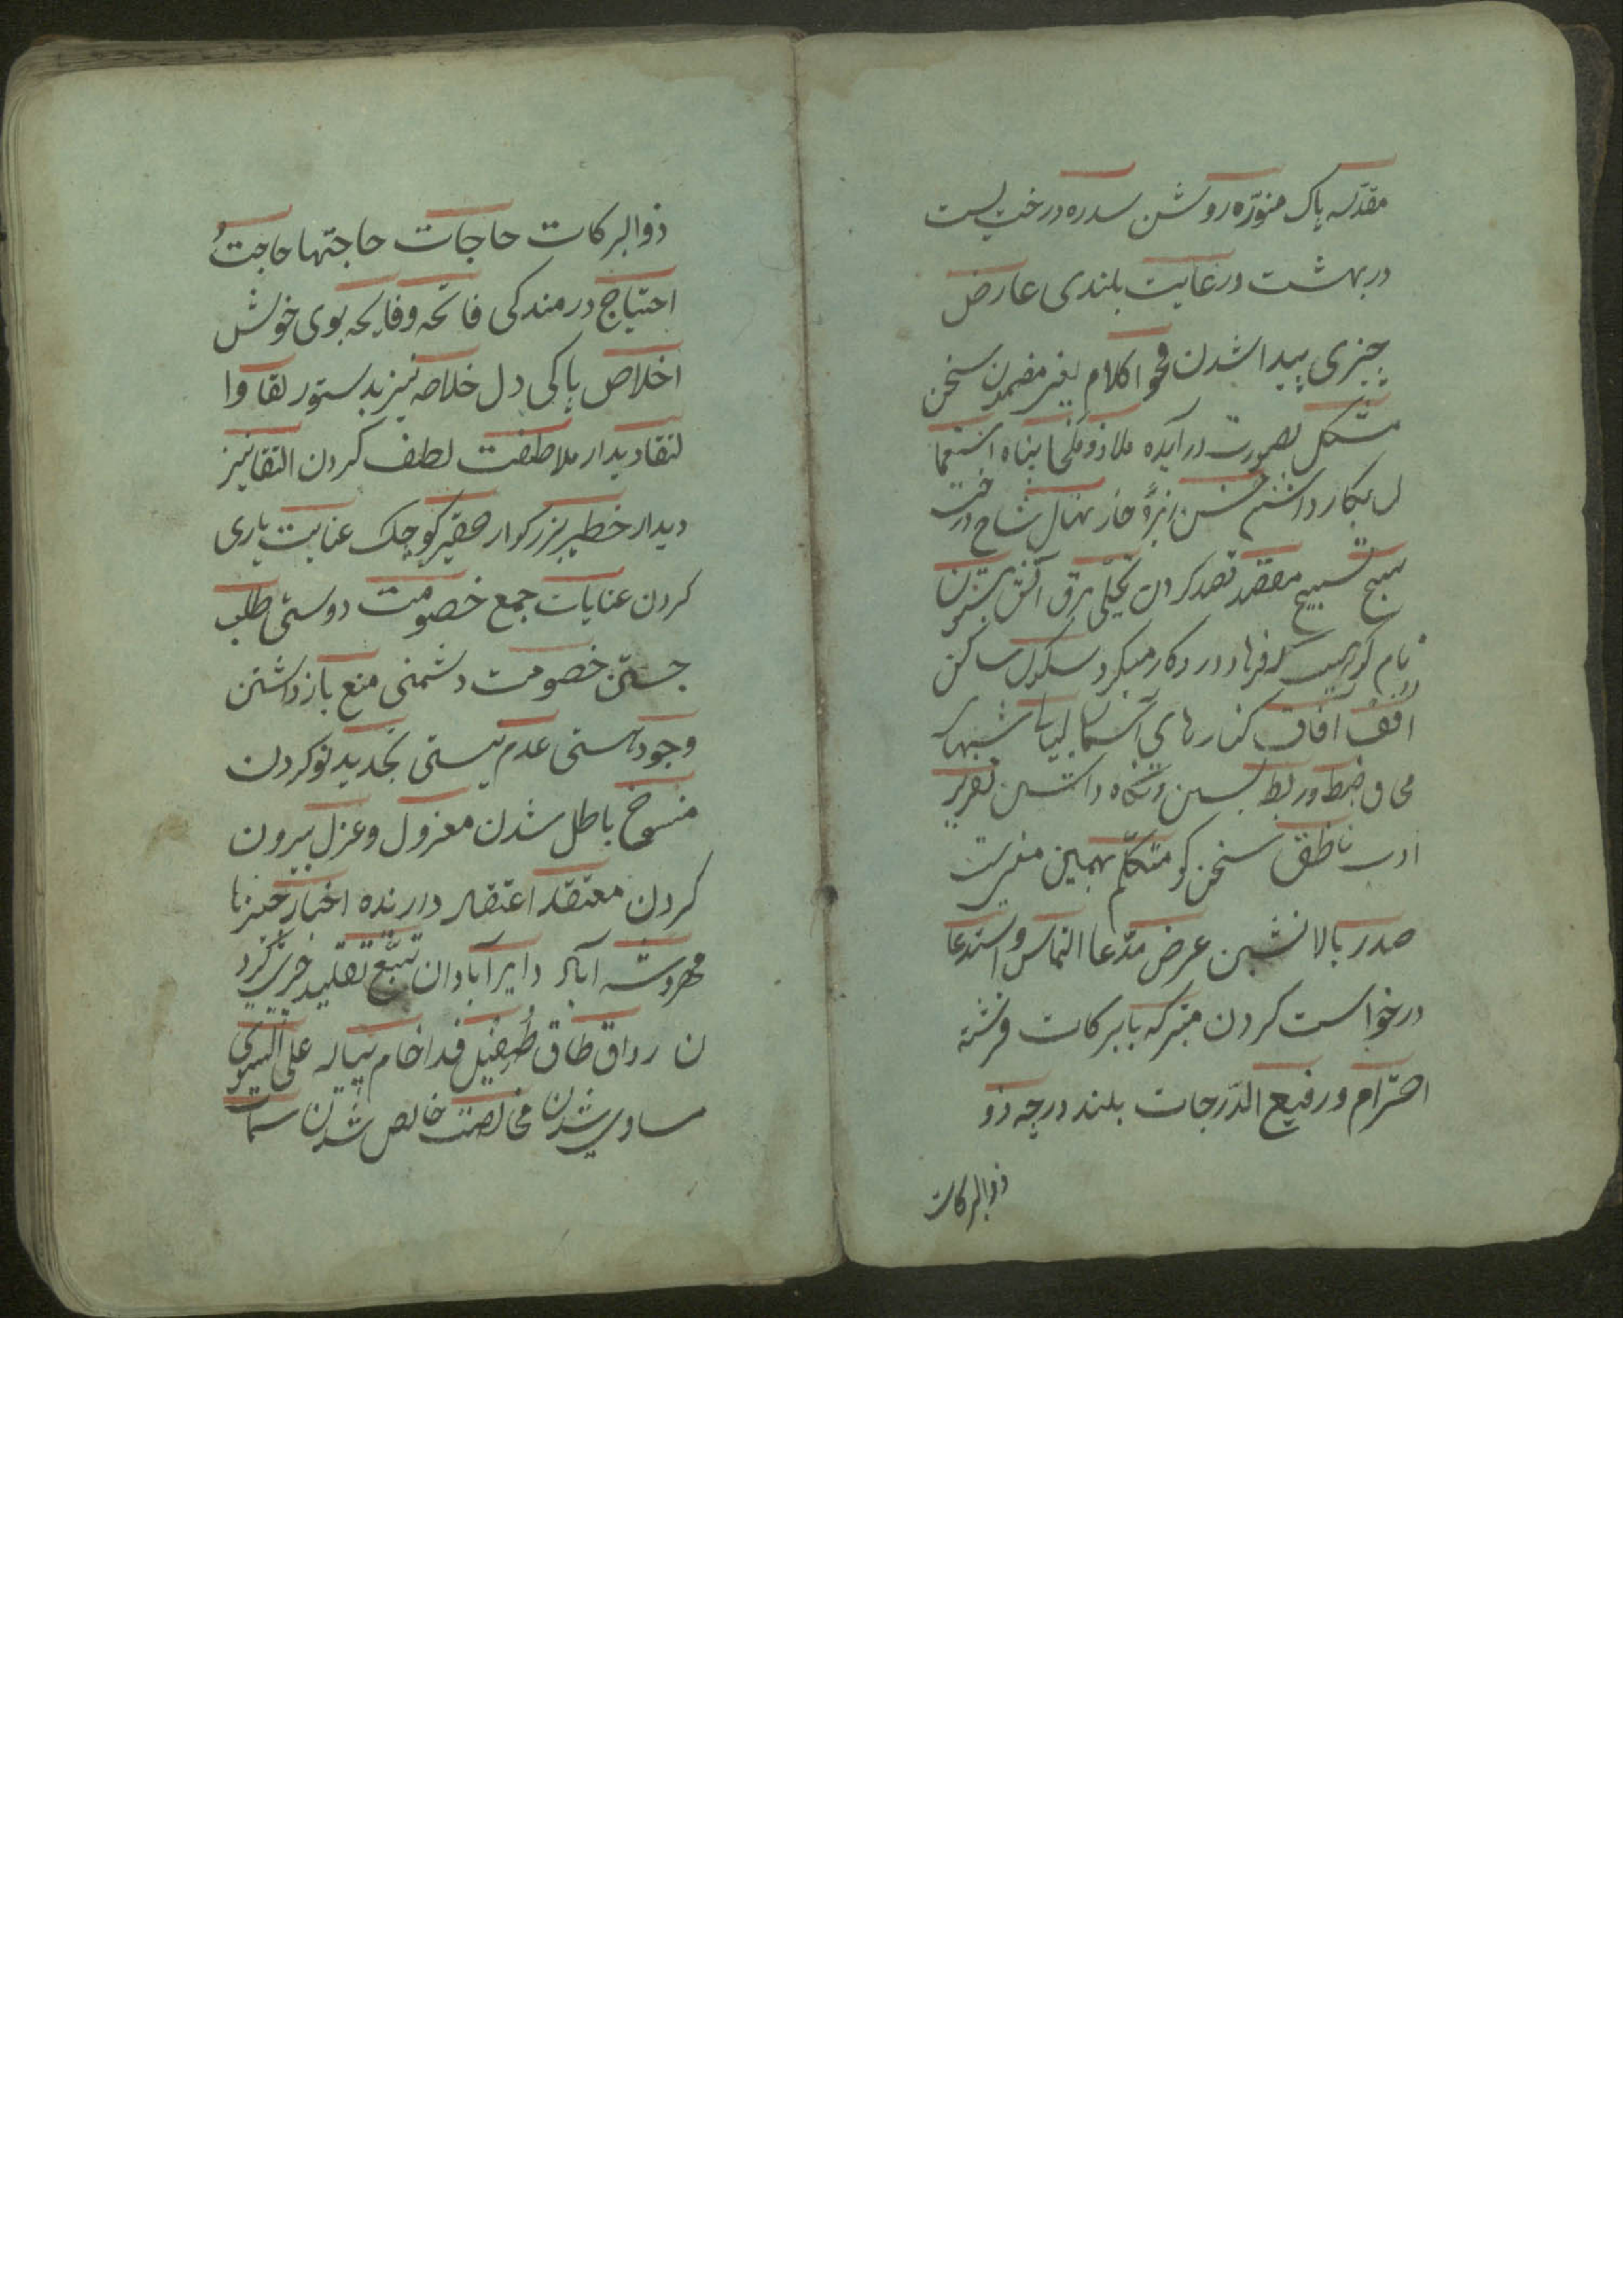 مقدّسه پاک منوّره روشن سدره درختیست
در بهشت در غایت بلندی عارض
چیزی پیدا شدن فحواکلام یعنی مضمون سخن
متشکل بصورت در آینده ملاذ و ملجا پناه استعما
ل بکار داشتن خس ریزهٔ خار نهال شاخ درخت
سبح تسبیح مقصد قصد کردن تجلّی برق آتش بیستون
نام کوهیست که فرهاد در و کار میکرد سکون ساکن
افق آفاق کنارهای آسمان لیالی شبها
ضبط و ربط بستن و نگاه داشتن تقریر
ادب ناطق سخن کو متکلّم بهمین معنیست
صدر بالانشین عرض مدّعا التماس و استدعا
درخواست کردن متبرکه با برکات فرشته
احترام و رفیع الدّرجات بلند درجه ذو
ذوالبرکات
ذوالبرکات حاجات حاجتها حاجت
احتیاج درمندکی فاتحه و فایحه بوی خوش
اخلاص پاکی دل خلاصه نیز بدستور لقا و ا
لتقا دیدار ملاطفت لطف کردن التقا نیز
دیدار خطیر بزرکوار حقیر کوچک عنایت یاری
کردن عنایات جمع خصومت دوستی طلب
جستن خصومت دشمنی منع باز داشتن
وجود هستی عدم نیستی تجدید نو کردن
منسوخ باطل شدن معزول و عزل بیرون
کردن معتقد اعتقاد دارنده اخبار خبرها
دایر آبادان تتبّع تقلید
ن رواق طاق طفیل فدا جام پیاله علی السّویّ
مساوی شدن مخالصت خالص شدن سمات